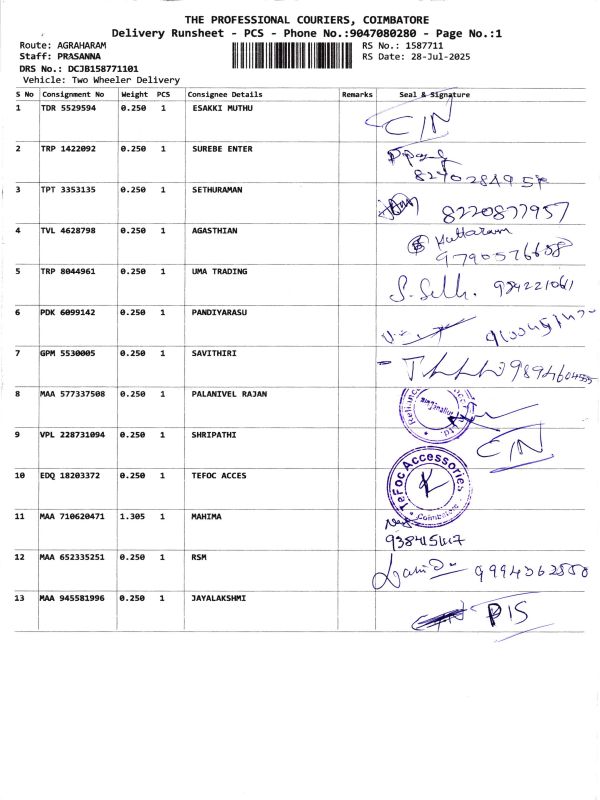 THE PROFESSIONAL COURIERS, COIMBATORE
Delivery Runsheet - PCS - Phone No.:9047080280 - Page No.:1
Route: AGRAHARAM
RS No.: 1587711
Staff: PRASANNA
RS Date: 28-Jul-2025
DRS No.: DCJB158771101
Vehicle: Two Wheeler Delivery
S No Consignment No Weight PCS Consignee Details Remarks Seal & Signature
1 TDR 5529594 0.250 1 ESAKKI MUTHU C/N
2 TRP 1422092 0.250 1 SUREBE ENTER
3 TPT 3353135 0.250 1 SETHURAMAN 8220877957
4 TVL 4628798 0.250 1 AGASTHIAN 9790576658
5 TRP 8044961 0.250 1 UMA TRADING
6 PDK 6099142 0.250 1 PANDIYARASU
7 GPM 5530005 0.250 1 SAVITHIRI
8 MAA 577337508 0.250 1 PALANIVEL RAJAN
9 VPL 228731094 0.250 1 SHRIPATHI C/N
10 EDQ 18203372 0.250 1 TEFOC ACCES TeFoc Accessories Coimbatore
11 MAA 710620471 1.305 1 MAHIMA
12 MAA 652335251 0.250 1 RSM
13 MAA 945581996 0.250 1 JAYALAKSHMI